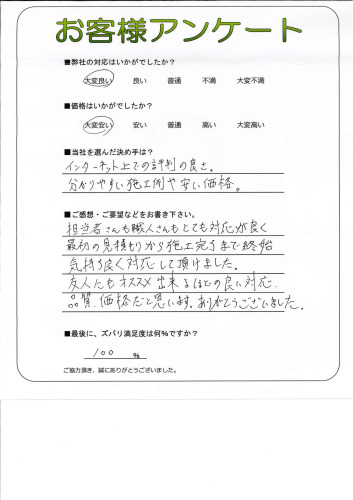 お客様アンケート
■弊社の対応はいかがでしたか？
大変良い 良い 普通 不満 大変不満
■価格はいかがでしたか？
大変安い 安い 普通 高い 大変高い
■当社を選んだ決め手は？
インターネット上での評判の良さ。
分かりやすい施工例や安い価格。
■ご感想・ご要望などをお書き下さい。
担当者さんも職人さんもとても対応が良く
最初の見積もりから施工完了まで終始
気持ち良く対応して頂けました。
友人にもオススメ出来るほどの良い対応
品質、価格だと思います。ありがとうございました。
■最後に、ズバリ満足度は何％ですか？
100 %
ご協力頂き、誠にありがとうございました。